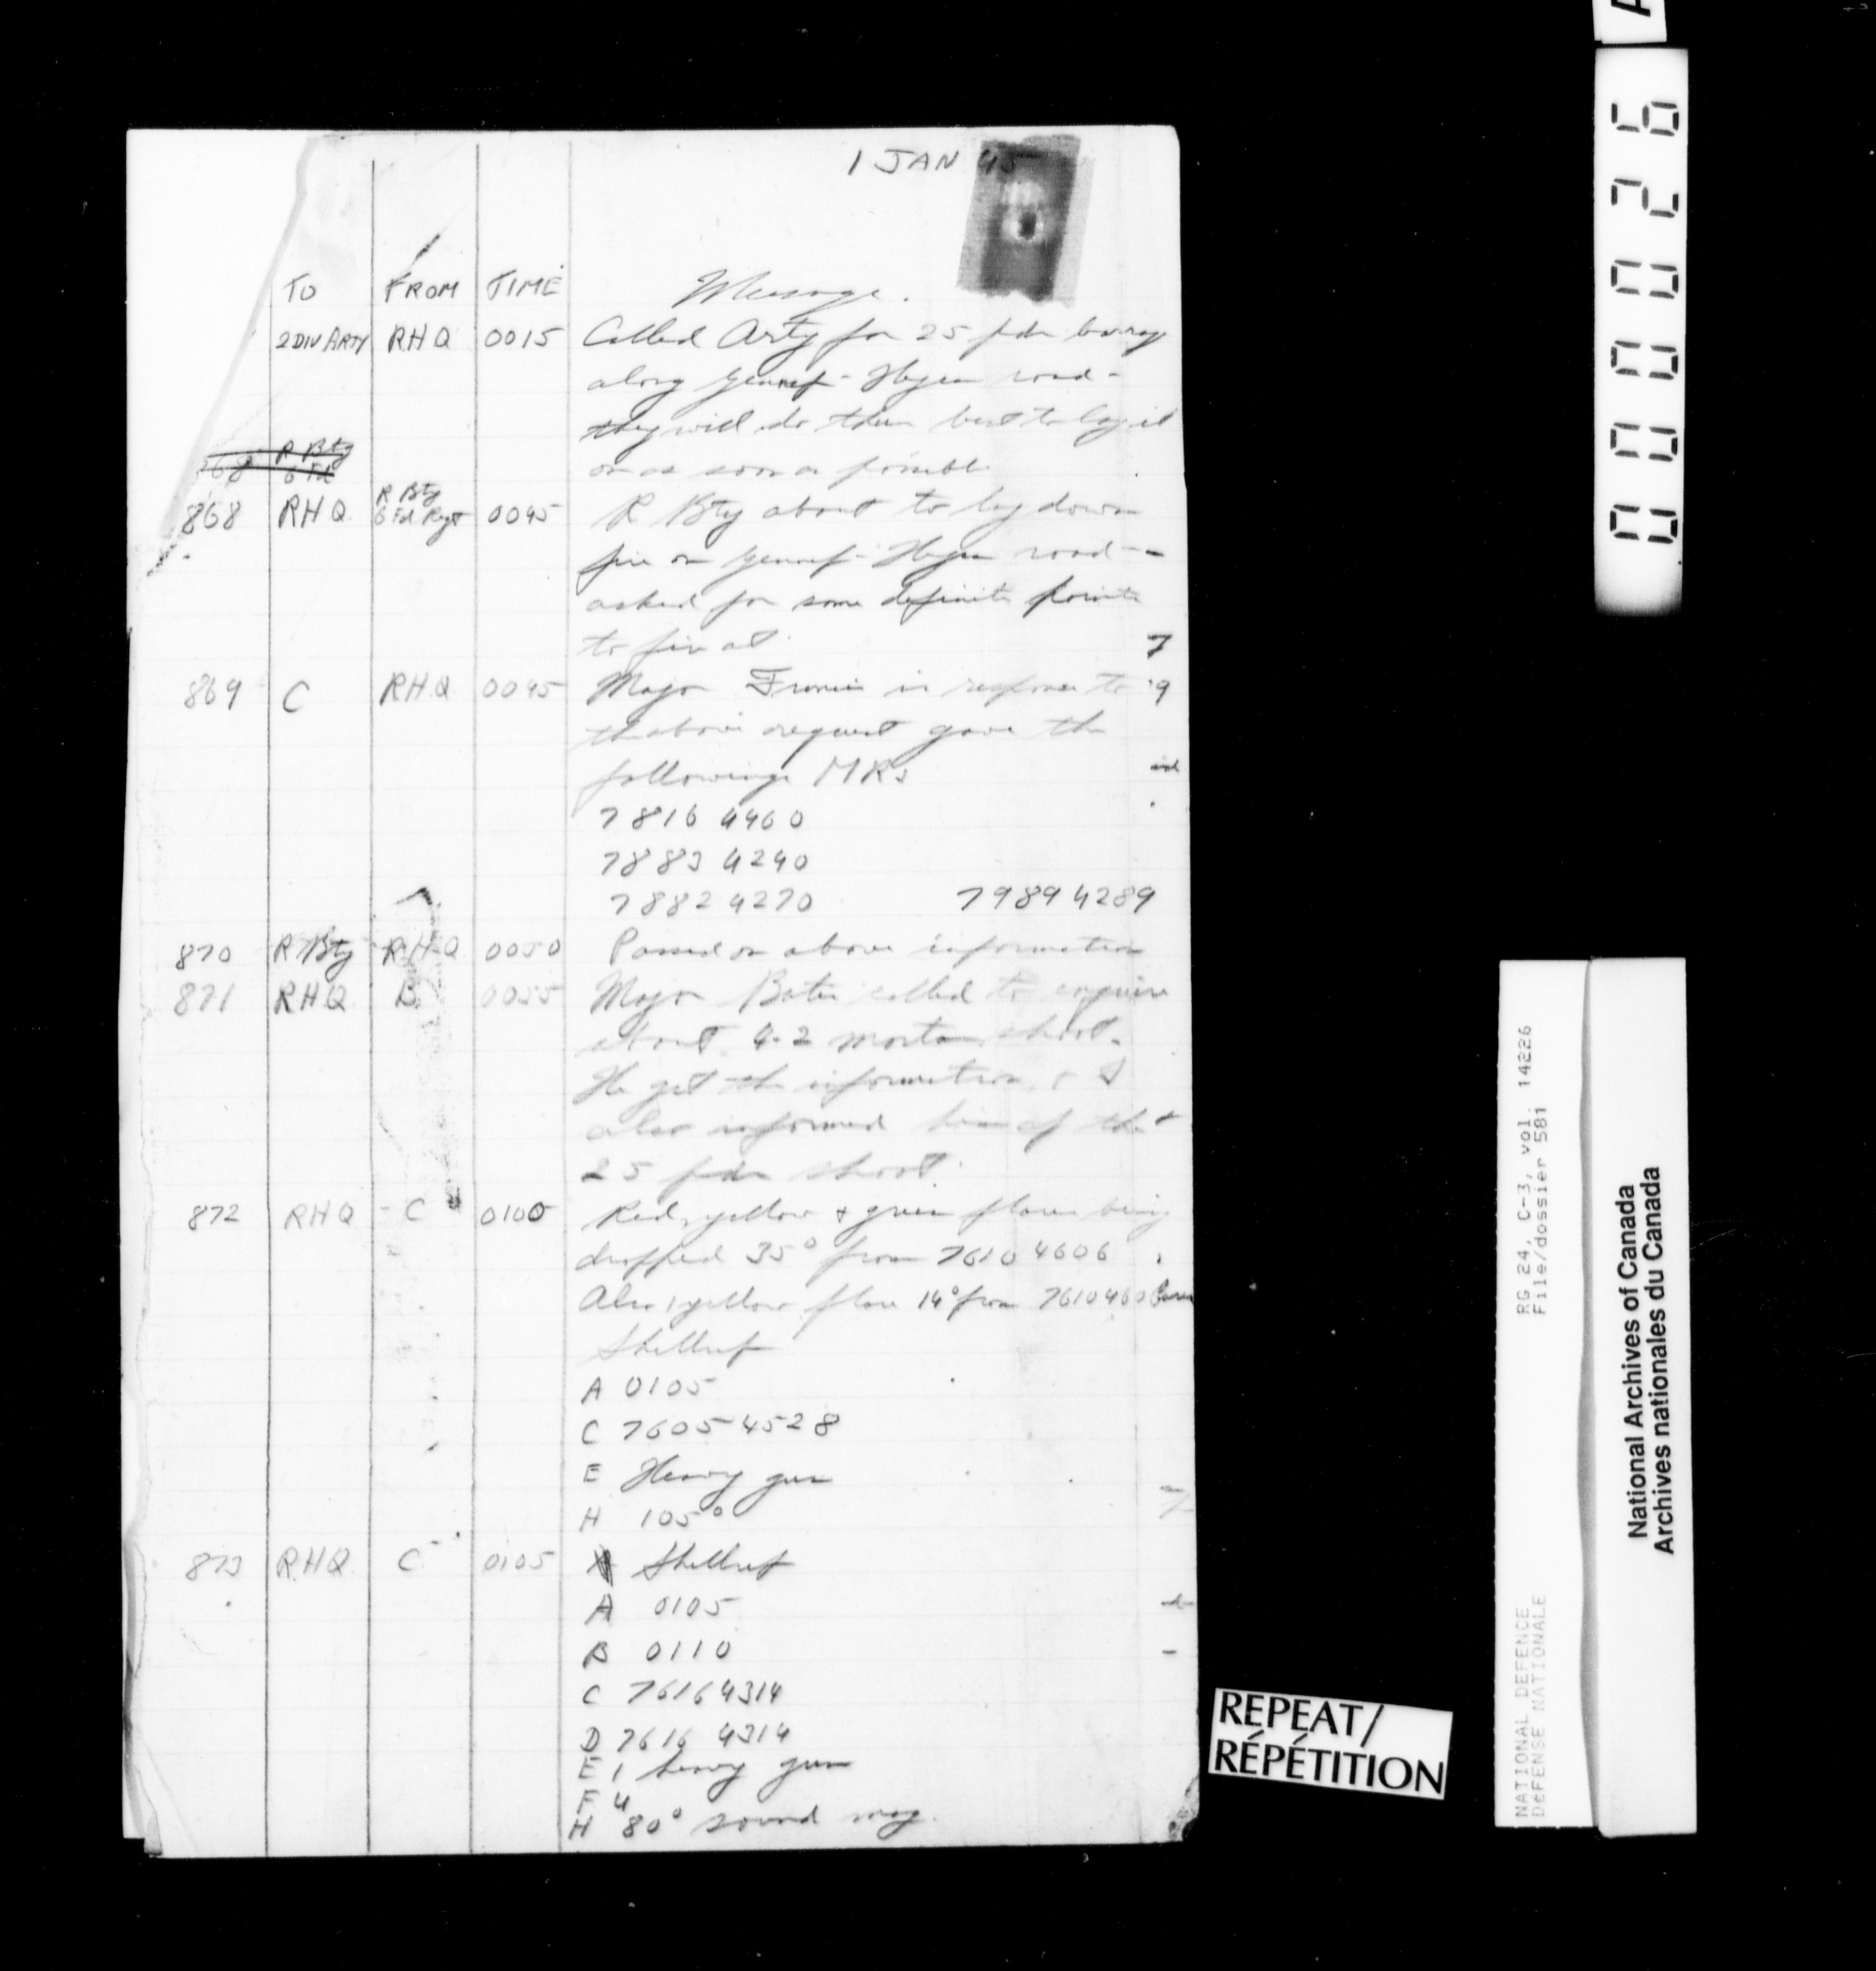 1 JAN 45
TO FROM TIME Message.
2 DIV ARTY RHQ 0015 Called Arty for 25 pdr barrage
along Gennep - Heyen road -
they will do their best to lay it
on as soon as possible
868 R Bty
6 Fd
868 RHQ R Bty
6 Fd Regt 0045 R Bty about to lay down
fire on Gennep - Heyen road -
asked for some definite points
to fire at
869 C RHQ 0045 Major Francis in response to
the above request gave the
following MRs
7816 4460
7883 4240
7882 4270 7989 4289
870 R Bty RHQ 0050 Passed on above information
871 RHQ B 0055 Major Bates called to enquire
about 4.2 mortar shoot.
He got the information, & I
also informed him of the
25 pdr shoot.
872 RHQ - C 0100 Red, yellow & green flares being
dropped 35° from 7610 4606
Also 1 yellow flare 14° from 7610 460
Shellrep
A 0105
C 7605 4528
E Heavy gun
H 105°
873 RHQ C 0105 Shellrep
A 0105
B 0110
C 7616 4314
D 7616 4314
E 1 heavy gun
F 4
H 80° sound mag.
REPEAT/
RÉPÉTITION
000026
RG 24, C-3, vol. 14226
File/dossier 581
NATIONAL DEFENCE
DÉFENSE NATIONALE
National Archives of Canada
Archives nationales du Canada